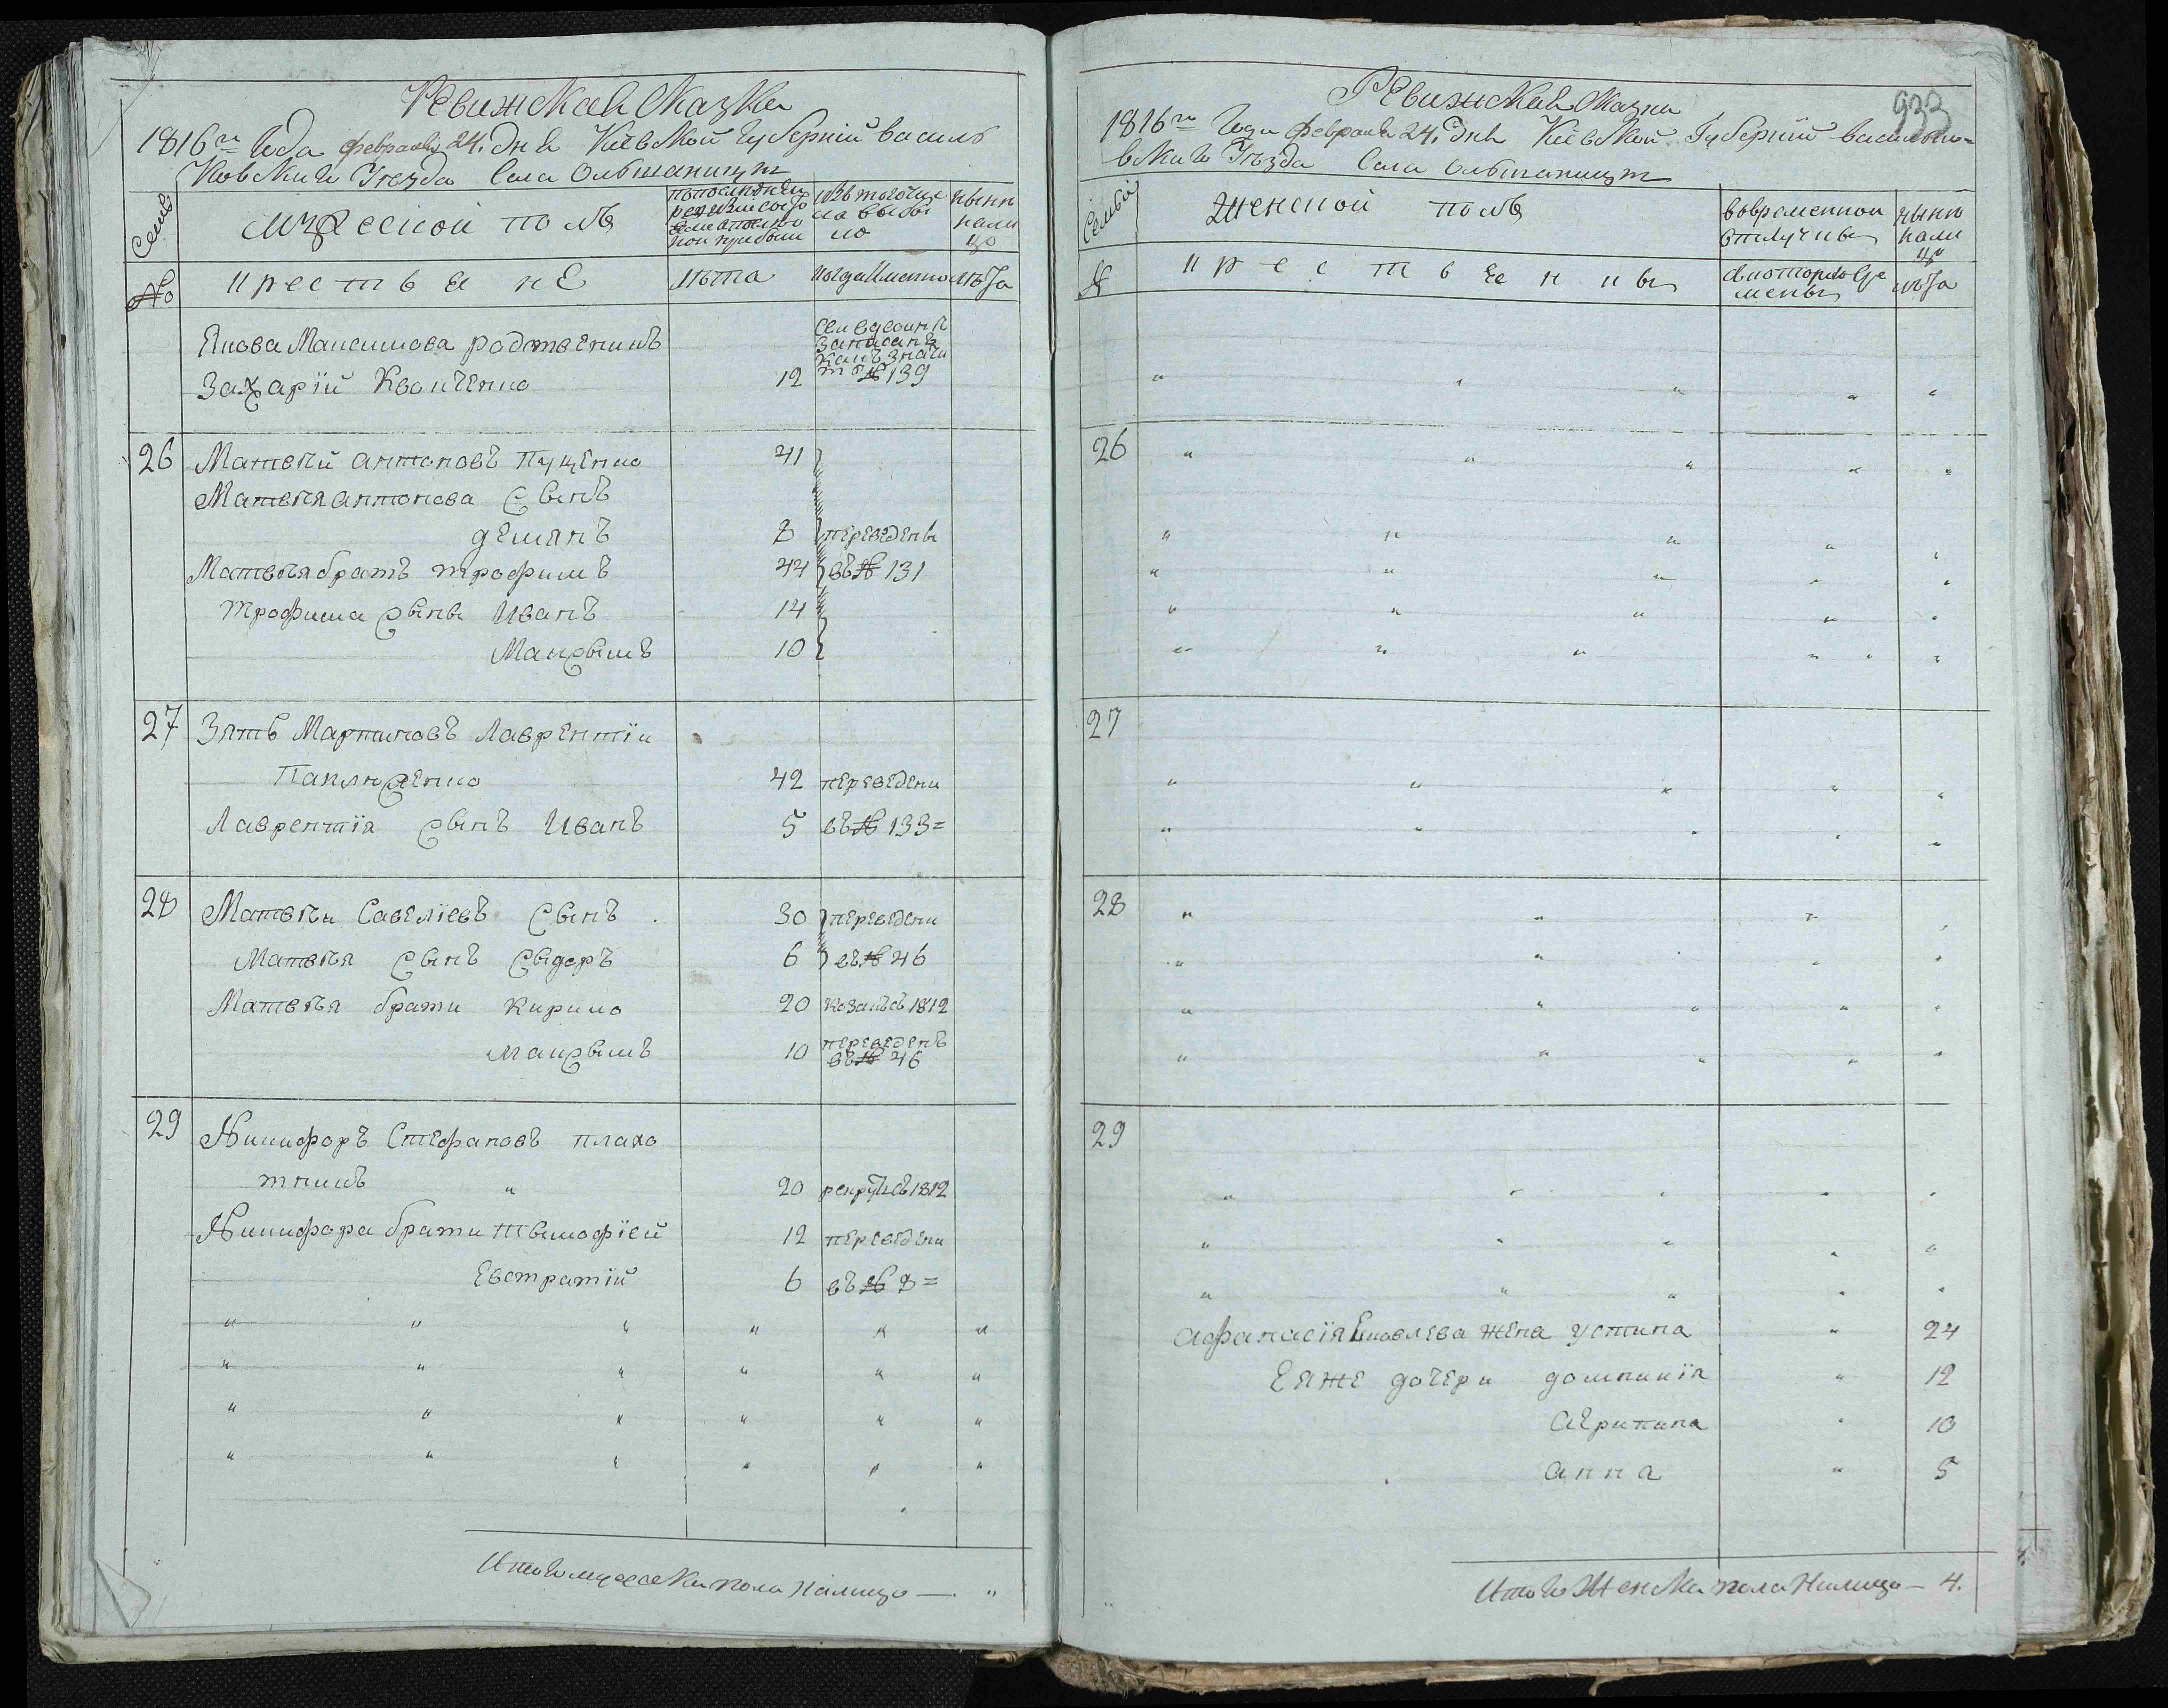 Ревижская Сказка
1816го Года февраля 24. дня Киевской Губернии Василь
Ковскаго Уезда Села Ольшаницы
Семьи
Мужеской полъ
по последней ревизии состо
яло и после оной прибыли
изъ того числа выбыло
ныне на лицо
№
крестьяне
лета
когда именно
лета
Якова Максимова родственикъ
Захарiй Квонченко 12
сей вдвойнѣ
записанъ
какъ значи
тъ № 139
26 Матвѣй Антоновъ Пущенко 41
Матвѣя Антонова Сынъ
демянъ 8 переведены
Матвѣя братъ трофимъ 44 въ № 131
трофима Сыны Иванъ 14
Максымъ 10
27 Зять Мартиновъ Лаврентiи
Паплюченко 42 переведени
Лаврентiя Сынъ Иванъ 5 въ № 133=
28 Матвѣи Савелiевъ Сынъ 30 переведени
Матвѣя Сынъ Сыдоръ 6 въ № 46
Матвѣя брати Кирило 20 козакъ съ 1812
Максымъ 10 переведенъ
въ № 46
29 Никифоръ Стефановъ плахо
тникъ " 20 рекрутъ съ 1812
Никифора брати тымофiей 12 переведени
Евстратiй 6 въ № 8=
Итого мужеска пола налицо — "
933
Ревижская Сказка
1816го Года февраля 24. дня Киевской Губернии Василько=
вскаго Уѣзда Села Ольшаницы
Семьи
Женской полъ
во временной отлучкѣ
ныне на лицо
№
крестьянки
с котораго времены
лѣта
26
27
28
29
Афанасiя Яковлева жена Устина " 24
Еяже дочери домникiя " 12
Агрипина " 10
анна " 5
Итого Женска пола Налицо — 4.